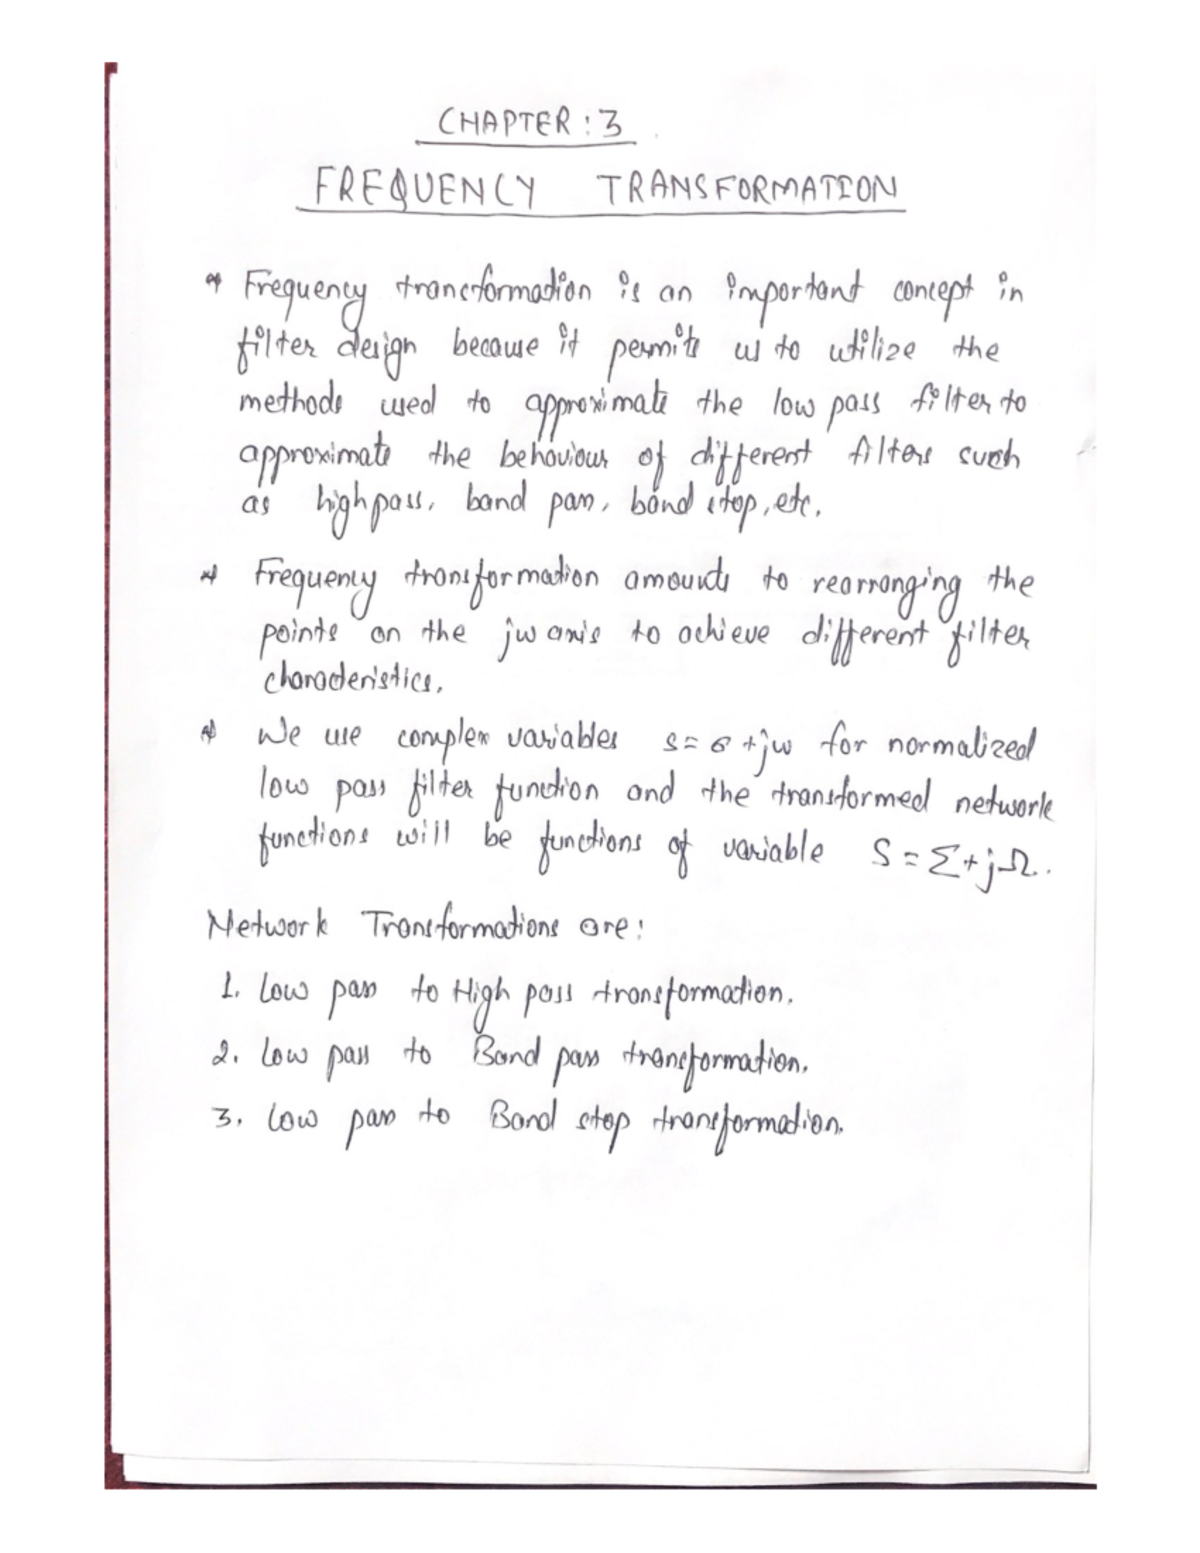 CHAPTER : 3
FREQUENCY TRANSFORMATION
* Frequency transformation is an important concept in
filter design because it permits us to utilize the
methods used to approximate the low pass filter to
approximate the behaviour of different filters such
as high pass, band pass, band stop, etc.
* Frequency transformation amounts to rearranging the
points on the jw axis to achieve different filter
characteristics.
* We use complex variables s = σ + jw for normalized
low pass filter function and the transformed network
functions will be functions of variable S = Σ + jΩ.
Network Transformations are:
1. Low pass to High pass transformation.
2. Low pass to Band pass transformation.
3. Low pass to Band stop transformation.